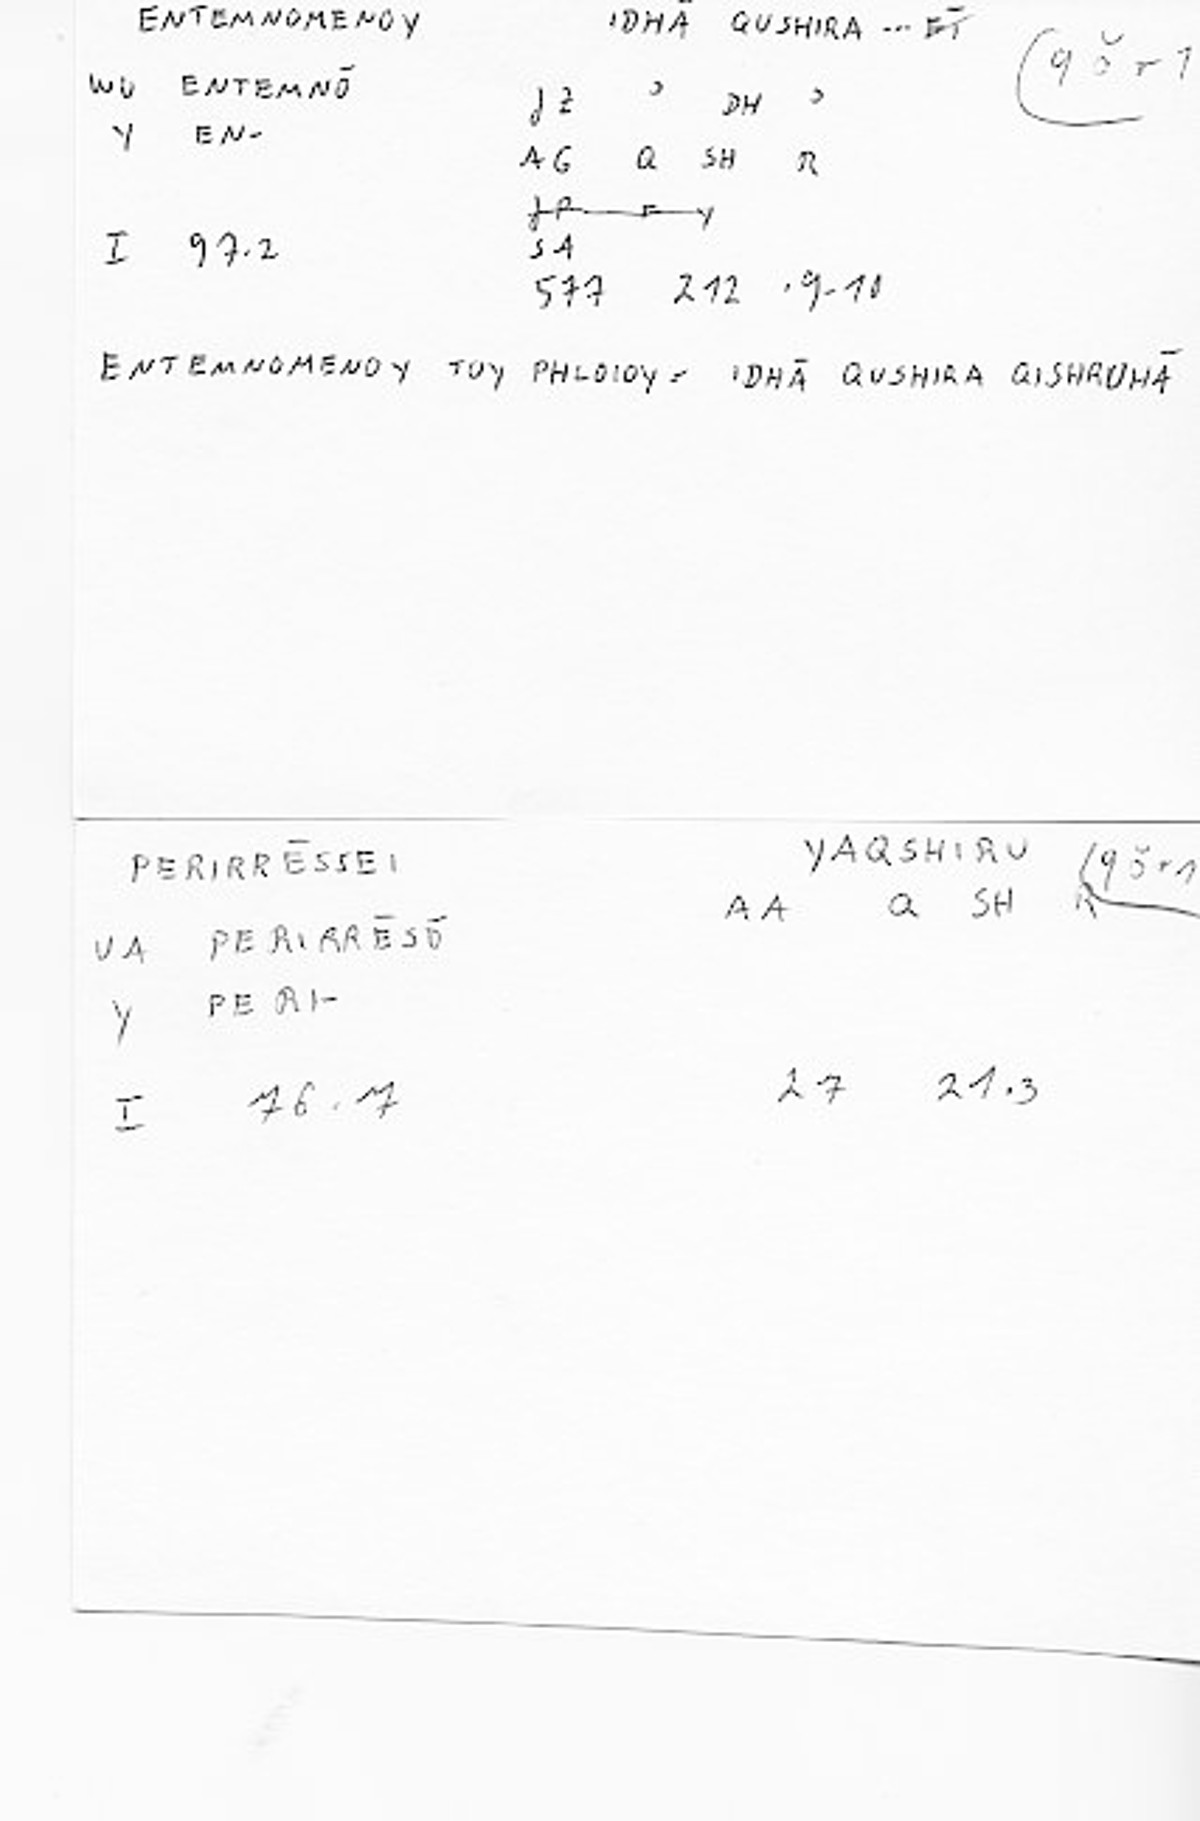 ENTEMNOMENOY IDHĀ QUSHIRA ... ET (q š r 1
WU ENTEMNŌ JZ ɔ DH ɔ
Y EN- AG Q SH R
JP F Y
I 97.2 SA
577 212 .9-10
ENTEMNOMENOY TOY PHLOIOY = IDHĀ QUSHIRA QISHRUHĀ
PERIRRĒSSEI YAQSHIRU (q š r 1
AA Q SH R
UA PERIRRĒSŌ
Y PERI-
I 76.7 27 21.3